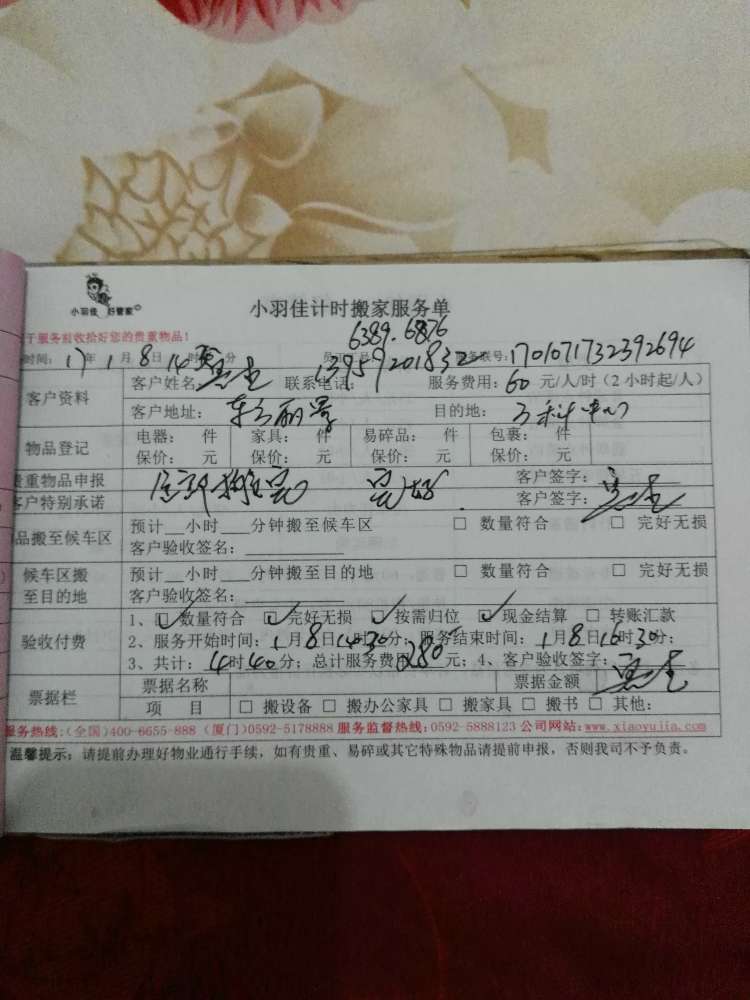 小羽佳 好管家
小羽佳计时搬家服务单
于服务前收拾好您的贵重物品!
6389.6876
时间: 17年 1月8日 14时 分 务联号: 1701071732392694
客户资料 客户姓名: 联系电话: 13959201832 服务费用: 60 元/人/时(2小时起/人)
客户地址: 目的地: 中心
物品登记 电器: 件 家具: 件 易碎品: 件 包裹: 件
保价: 元 保价: 元 保价: 元 保价: 元
贵重物品申报 客户签字:
客户特别承诺 完好 客户签字:
品搬至候车区 预计__小时___分钟搬至候车区 □ 数量符合 □ 完好无损
客户验收签名:
候车区搬至目的地 预计__小时___分钟搬至目的地 □ 数量符合 □ 完好无损
客户验收签名:
验收付费 1、☑数量符合 ☑完好无损 ☑按需归位 ☑现金结算 □ 转账汇款
2、服务开始时间: 1月8日14时30分; 服务结束时间: 1月8日16时30分;
3、共计: 4时40分; 总计服务费用280元; 4、客户验收签字:
票据栏 票据名称 票据金额
项 目 □ 搬设备 □ 搬办公家具 □ 搬家具 □ 搬书 □ 其他:
服务热线:(全国)400-6655-888 (厦门)0592-5178888 服务监督热线:0592-5888123 公司网站:www.xiaoyujia.com
温馨提示: 请提前办理好物业通行手续, 如有贵重、易碎或其它特殊物品请提前申报, 否则我司不予负责。